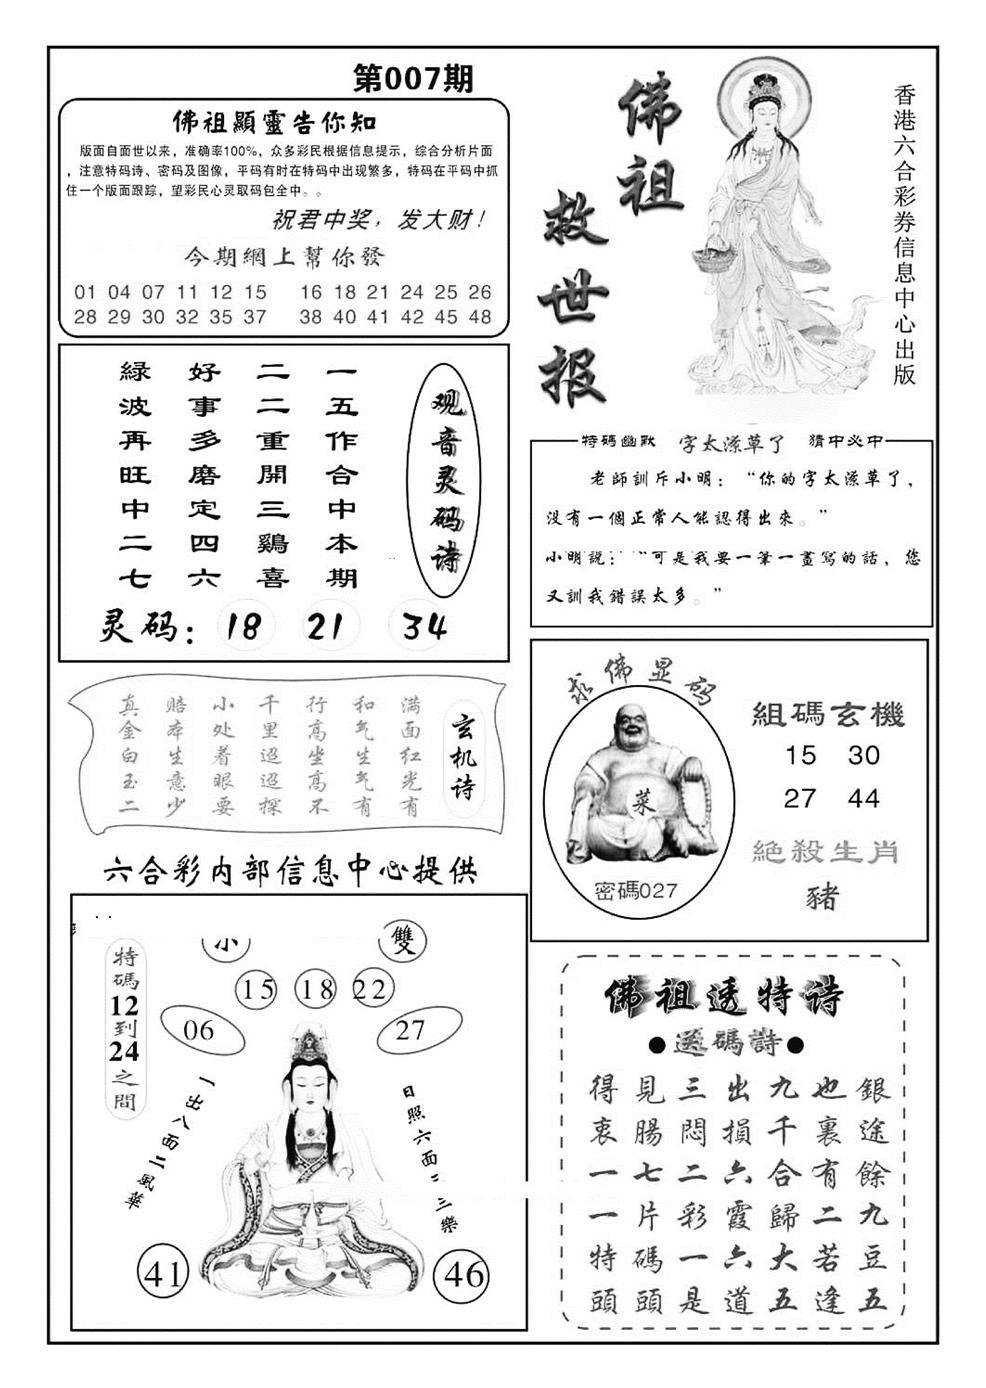 第007期
佛祖顯靈告你知
版面自面世以来，准确率100%，众多彩民根据信息提示，综合分析片面
，注意特码诗、密码及图像，平码有时在特码中出现繁多，特码在平码中抓
住一个版面跟踪，望彩民心灵取码包全中。。
祝君中奖，发大财！
今期網上幫你發
01 04 07 11 12 15 16 18 21 24 25 26
28 29 30 32 35 37 38 40 41 42 45 48
佛祖
救世报
香港六合彩券信息中心出版
观音灵码诗
一五作合中本期
二二重開三鷄喜
好事多磨定四六
緑波再旺中二七
灵码：18 21 34
特碼幽默 字太潦草了 猜中必中
老師訓斥小明：“你的字太潦草了，
没有一個正常人能認得出來。”
小明説：“可是我要一筆一畫寫的話，您
又訓我錯誤太多。”
玄机诗
满面红光有
和气生气有
行高坐高不
千里迢迢探
小处着眼要
赔本生意少
真金白玉二
六合彩内部信息中心提供
求佛显码
菜
密碼027
組碼玄機
15 30
27 44
絕殺生肖
豬
特碼12到24之間
小
雙
15 18 22
06
27
一出八面二風華
日照六面二三樂
41
46
佛祖透特诗
●送碼詩●
銀途餘九豆五
也裏有二若逢
九千合歸大五
出損六霞六道
三悶二彩一是
見腸七片碼頭
得衷一一特頭